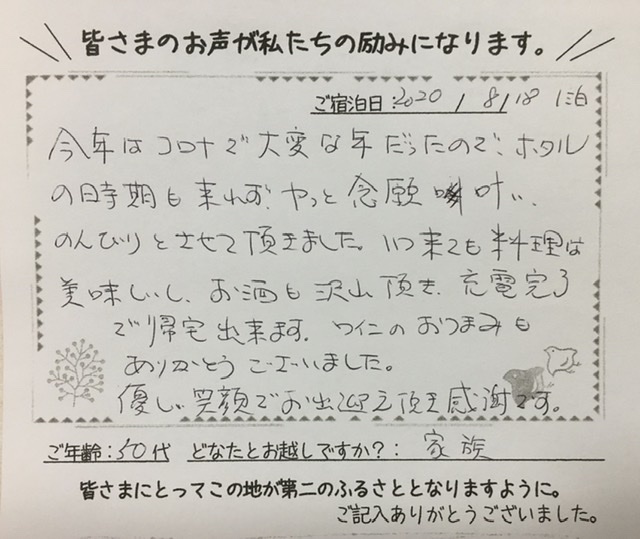 皆さまのお声が私たちの励みになります。
ご宿泊日:2020 / 8/18 1泊
今年はコロナで大変な年だったので、ホタル
の時期も来れず、やっと念願叶い、
のんびりとさせて頂きました。いつ来ても料理は
美味しいし、お酒も沢山頂き、充電完了
で帰宅出来ます。ワインのおつまみも
ありがとうございました。
優しい笑顔でお出迎え頂き感謝です。
ご年齢:50代 どなたとお越しですか?: 家族
皆さまにとってこの地が第二のふるさととなりますように。
ご記入ありがとうございました。